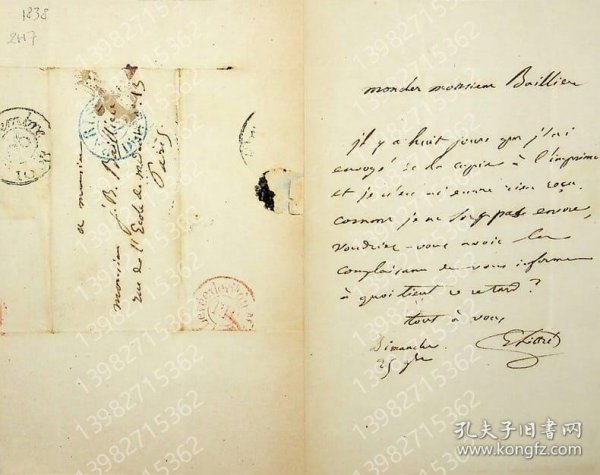 1838
2117
a monsieur
monsieur J. B. Baillière
rue de l'Ecole de médecine 13
Paris
mon cher monsieur Baillière
il y a huit jours que j'ai
envoyé de la copie à l'imprimerie
et je n'en ai encore rien reçu.
comme je ne sors pas encore,
voudriez-vous avoir la
complaisance de vous informer
à quoi tient ce retard?
tout à vous
E Littré
Dimanche
25
13982715362
孔夫子旧书网
kongfz.com